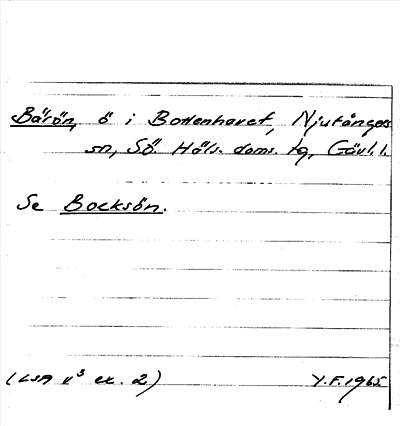 Bärön, ö i Bottenhavet, Njutångers
sn, Sö. Häls. doms. tg, Gävl. l.
Se Bocksön.
(LSA v³ ex. 2) Y.F. 1965